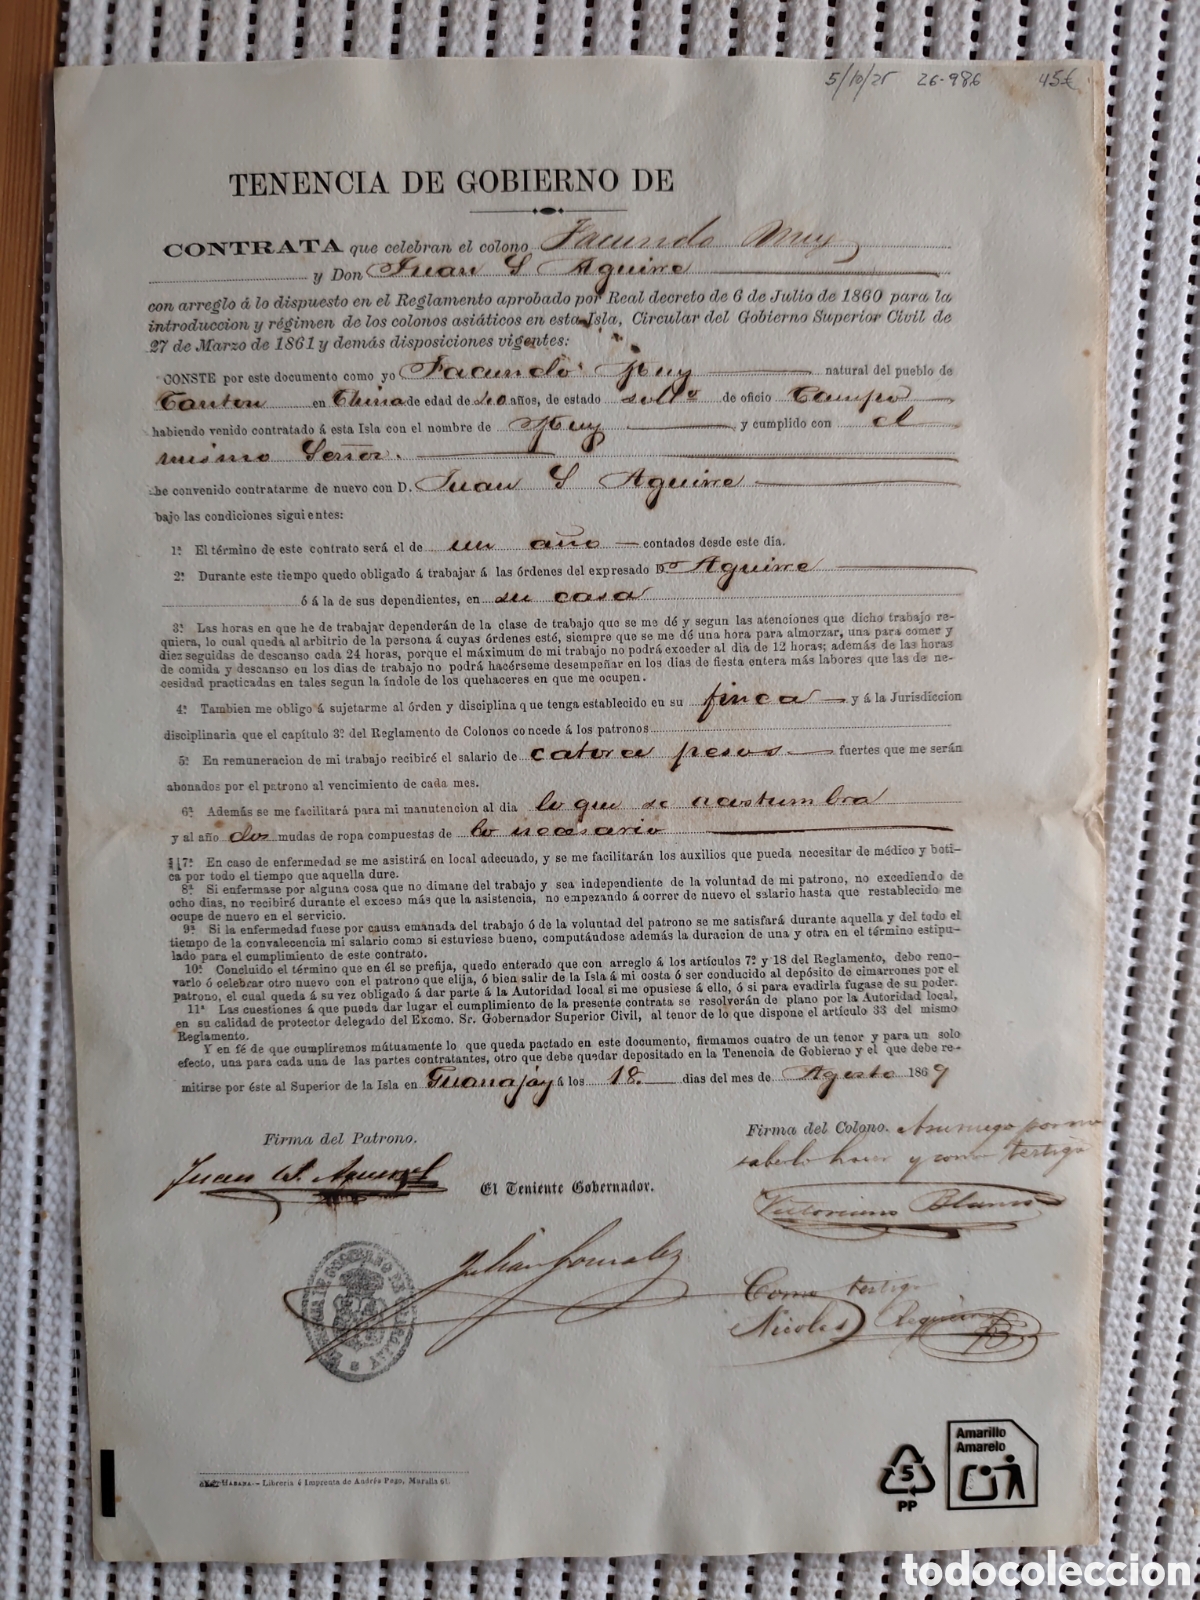 5/10/25 26-986 45€
TENENCIA DE GOBIERNO DE
CONTRATA que celebran el colono Facundo Muy
y Don Juan S Aguirre
con arreglo á lo dispuesto en el Reglamento aprobado por Real decreto de 6 de Julio de 1860 para la
introduccion y régimen de los colonos asiáticos en esta Isla, Circular del Gobierno Superior Civil de
27 de Marzo de 1861 y demás disposiciones vigentes:
CONSTE por este documento como yo Facundo natural del pueblo de
Canton en China de edad de 20 años, de estado solto de oficio Campo
habiendo venido contratado á esta Isla con el nombre de y cumplido con el
mismo Señor.
he convenido contratarme de nuevo con D. Juan S Aguirre
bajo las condiciones siguientes:
1ª El término de este contrato será el de un año contados desde este dia.
2ª Durante este tiempo quedo obligado á trabajar á las órdenes del expresado D. Aguirre
ó á la de sus dependientes, en su casa
3ª Las horas en que he de trabajar dependerán de la clase de trabajo que se me dé y segun las atenciones que dicho trabajo re-
quiera, lo cual queda al arbitrio de la persona á cuyas órdenes esté, siempre que se me dé una hora para almorzar, una para comer y
diez seguidas de descanso cada 24 horas, porque el máximum de mi trabajo no podrá exceder al dia de 12 horas; además de las horas
de comida y descanso en los dias de trabajo no podrá hacérseme desempeñar en los dias de fiesta entera más labores que las de ne-
cesidad practicadas en tales segun la índole de los quehaceres en que me ocupen.
4ª Tambien me obligo á sujetarme al órden y disciplina que tenga establecido en su finca y á la Jurisdiccion
disciplinaria que el capítulo 3º del Reglamento de Colonos concede á los patronos
5ª En remuneracion de mi trabajo recibiré el salario de catorce pesos fuertes que me serán
abonados por el patrono al vencimiento de cada mes.
6ª Además se me facilitará para mi manutencion al dia lo que se acostumbra
y al año dos mudas de ropa compuestas de lo necesario
7ª En caso de enfermedad se me asistirá en local adecuado, y se me facilitarán los auxilios que pueda necesitar de médico y boti-
ca por todo el tiempo que aquella dure.
8ª Si enfermase por alguna cosa que no dimane del trabajo y sea independiente de la voluntad de mi patrono, no excediendo de
ocho dias, no recibiré durante el exceso más que la asistencia, no empezando á correr de nuevo el salario hasta que restablecido me
ocupe de nuevo en el servicio.
9ª Si la enfermedad fuese por causa emanada del trabajo ó de la voluntad del patrono se me satisfará durante aquella y del todo el
tiempo de la convalecencia mi salario como si estuviese bueno, computándose además la duracion de una y otra en el término estipu-
lado para el cumplimiento de este contrato.
10ª Concluido el término que en él se prefija, quedo enterado que con arreglo á los artículos 7º y 18 del Reglamento, debo reno-
varlo ó celebrar otro nuevo con el patrono que elija, ó bien salir de la Isla á mi costa ó ser conducido al depósito de cimarrones por el
patrono, el cual queda á su vez obligado á dar parte á la Autoridad local si me opusiese á ello, ó si para evadirla fugase de su poder.
11ª Las cuestiones á que pueda dar lugar el cumplimiento de la presente contrata se resolverán de plano por la Autoridad local,
en su calidad de protector delegado del Excmo. Sr. Gobernador Superior Civil, al tenor de lo que dispone el artículo 33 del mismo
Reglamento.
Y en fé de que cumpliremos mútuamente lo que queda pactado en este documento, firmamos cuatro de un tenor y para un solo
efecto, una para cada una de las partes contratantes, otro que debe quedar depositado en la Tenencia de Gobierno y el que debe re-
mitirse por éste al Superior de la Isla en Guanajay á los 18 dias del mes de Agosto 1869
Firma del Patrono.
Firma del Colono. Aruniego por no
saberlo hacer y como testigo
Juan S. Aguirre
El Teniente Gobernador.
Victoriano Blanco
Julian Gonzalez
Como testigo
Nicolas
HABANA.—Librería é Imprenta de Andrés Pego, Muralla 61.
Amarillo
Amarelo
5
PP
todocoleccion